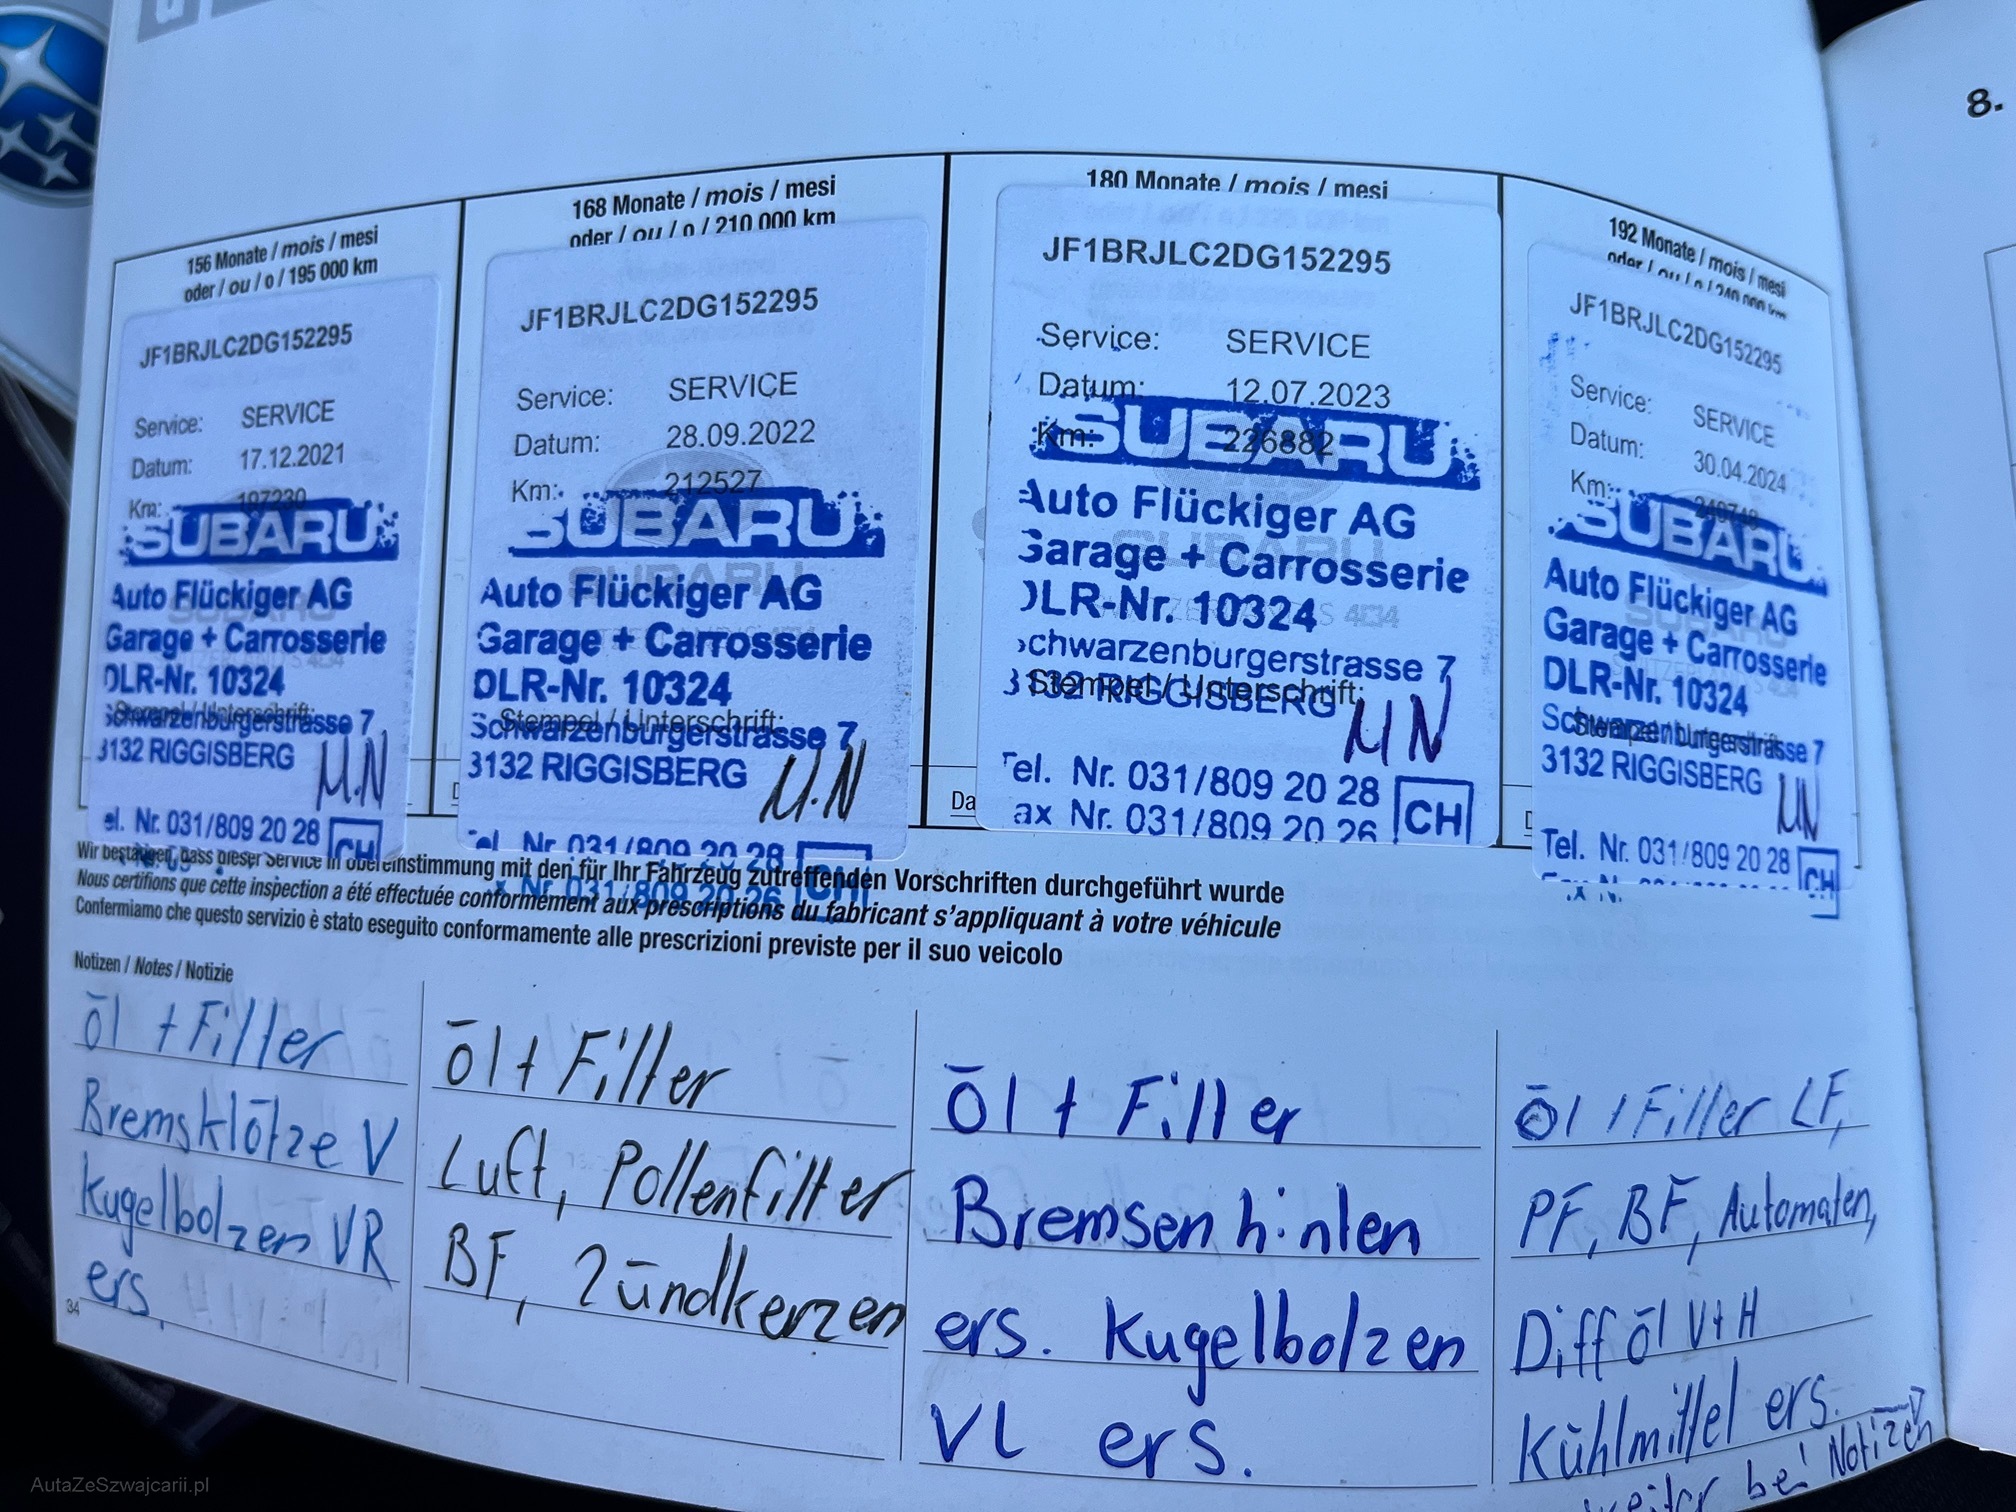 8.
156 Monate / mois / mesi
oder / ou / o / 195 000 km
JF1BRJLC2DG152295
Service: SERVICE
Datum: 17.12.2021
Km:
SUBARU
Auto Flückiger AG
Garage + Carrosserie
DLR-Nr. 10324
Schwarzenburgerstrasse 7
3132 RIGGISBERG
M.N
el. Nr. 031/809 20 28 CH
168 Monate / mois / mesi
oder / ou / o / 210 000 km
JF1BRJLC2DG152295
Service: SERVICE
Datum: 28.09.2022
Km: 212527
SUBARU
Auto Flückiger AG
Garage + Carrosserie
DLR-Nr. 10324
Stempel / Unterschrift:
Schwarzenburgerstrasse 7
3132 RIGGISBERG
M.N
el. Nr. 031/809 20 28
x Nr. 031/809 20 26 CH
180 Monate / mois / mesi
JF1BRJLC2DG152295
Service: SERVICE
Datum: 12.07.2023
Km: 226882
SUBARU
Auto Flückiger AG
Garage + Carrosserie
DLR-Nr. 10324
chwarzenburgerstrasse 7
Stempel / Unterschrift:
3132 RIGGISBERG
MN
Da
Tel. Nr. 031/809 20 28
ax Nr. 031/809 20 26 CH
192 Monate / mois / mesi
oder / ou / o / 240 000 km
JF1BRJLC2DG152295
Service: SERVICE
Datum: 30.04.2024
Km:
SUBARU
Auto Flückiger AG
Garage + Carrosserie
DLR-Nr. 10324
Schwarzenburgerstrasse 7
3132 RIGGISBERG
MN
Tel. Nr. 031/809 20 28 CH
Wir bestätigen, dass dieser Service in Übereinstimmung mit den für Ihr Fahrzeug zutreffenden Vorschriften durchgeführt wurde
Nous certifions que cette inspection a été effectuée conformément aux prescriptions du fabricant s'appliquant à votre véhicule
Confermiamo che questo servizio è stato eseguito conformamente alle prescrizioni previste per il suo veicolo
Notizen / Notes / Notizie
Öl + Filter
Bremsklötze V
Kugelbolzen VR
ers.
Öl + Filter
Luft, Pollenfilter
BF, Zündkerzen
Öl + Filter
Bremsen hinten
ers. Kugelbolzen
VL ers.
Öl + Filter LF,
PF, BF, Automaten,
Diff öl V+H
Kühlmittel ers.
weiter bei Notizen
34
AutaZeSzwajcarii.pl